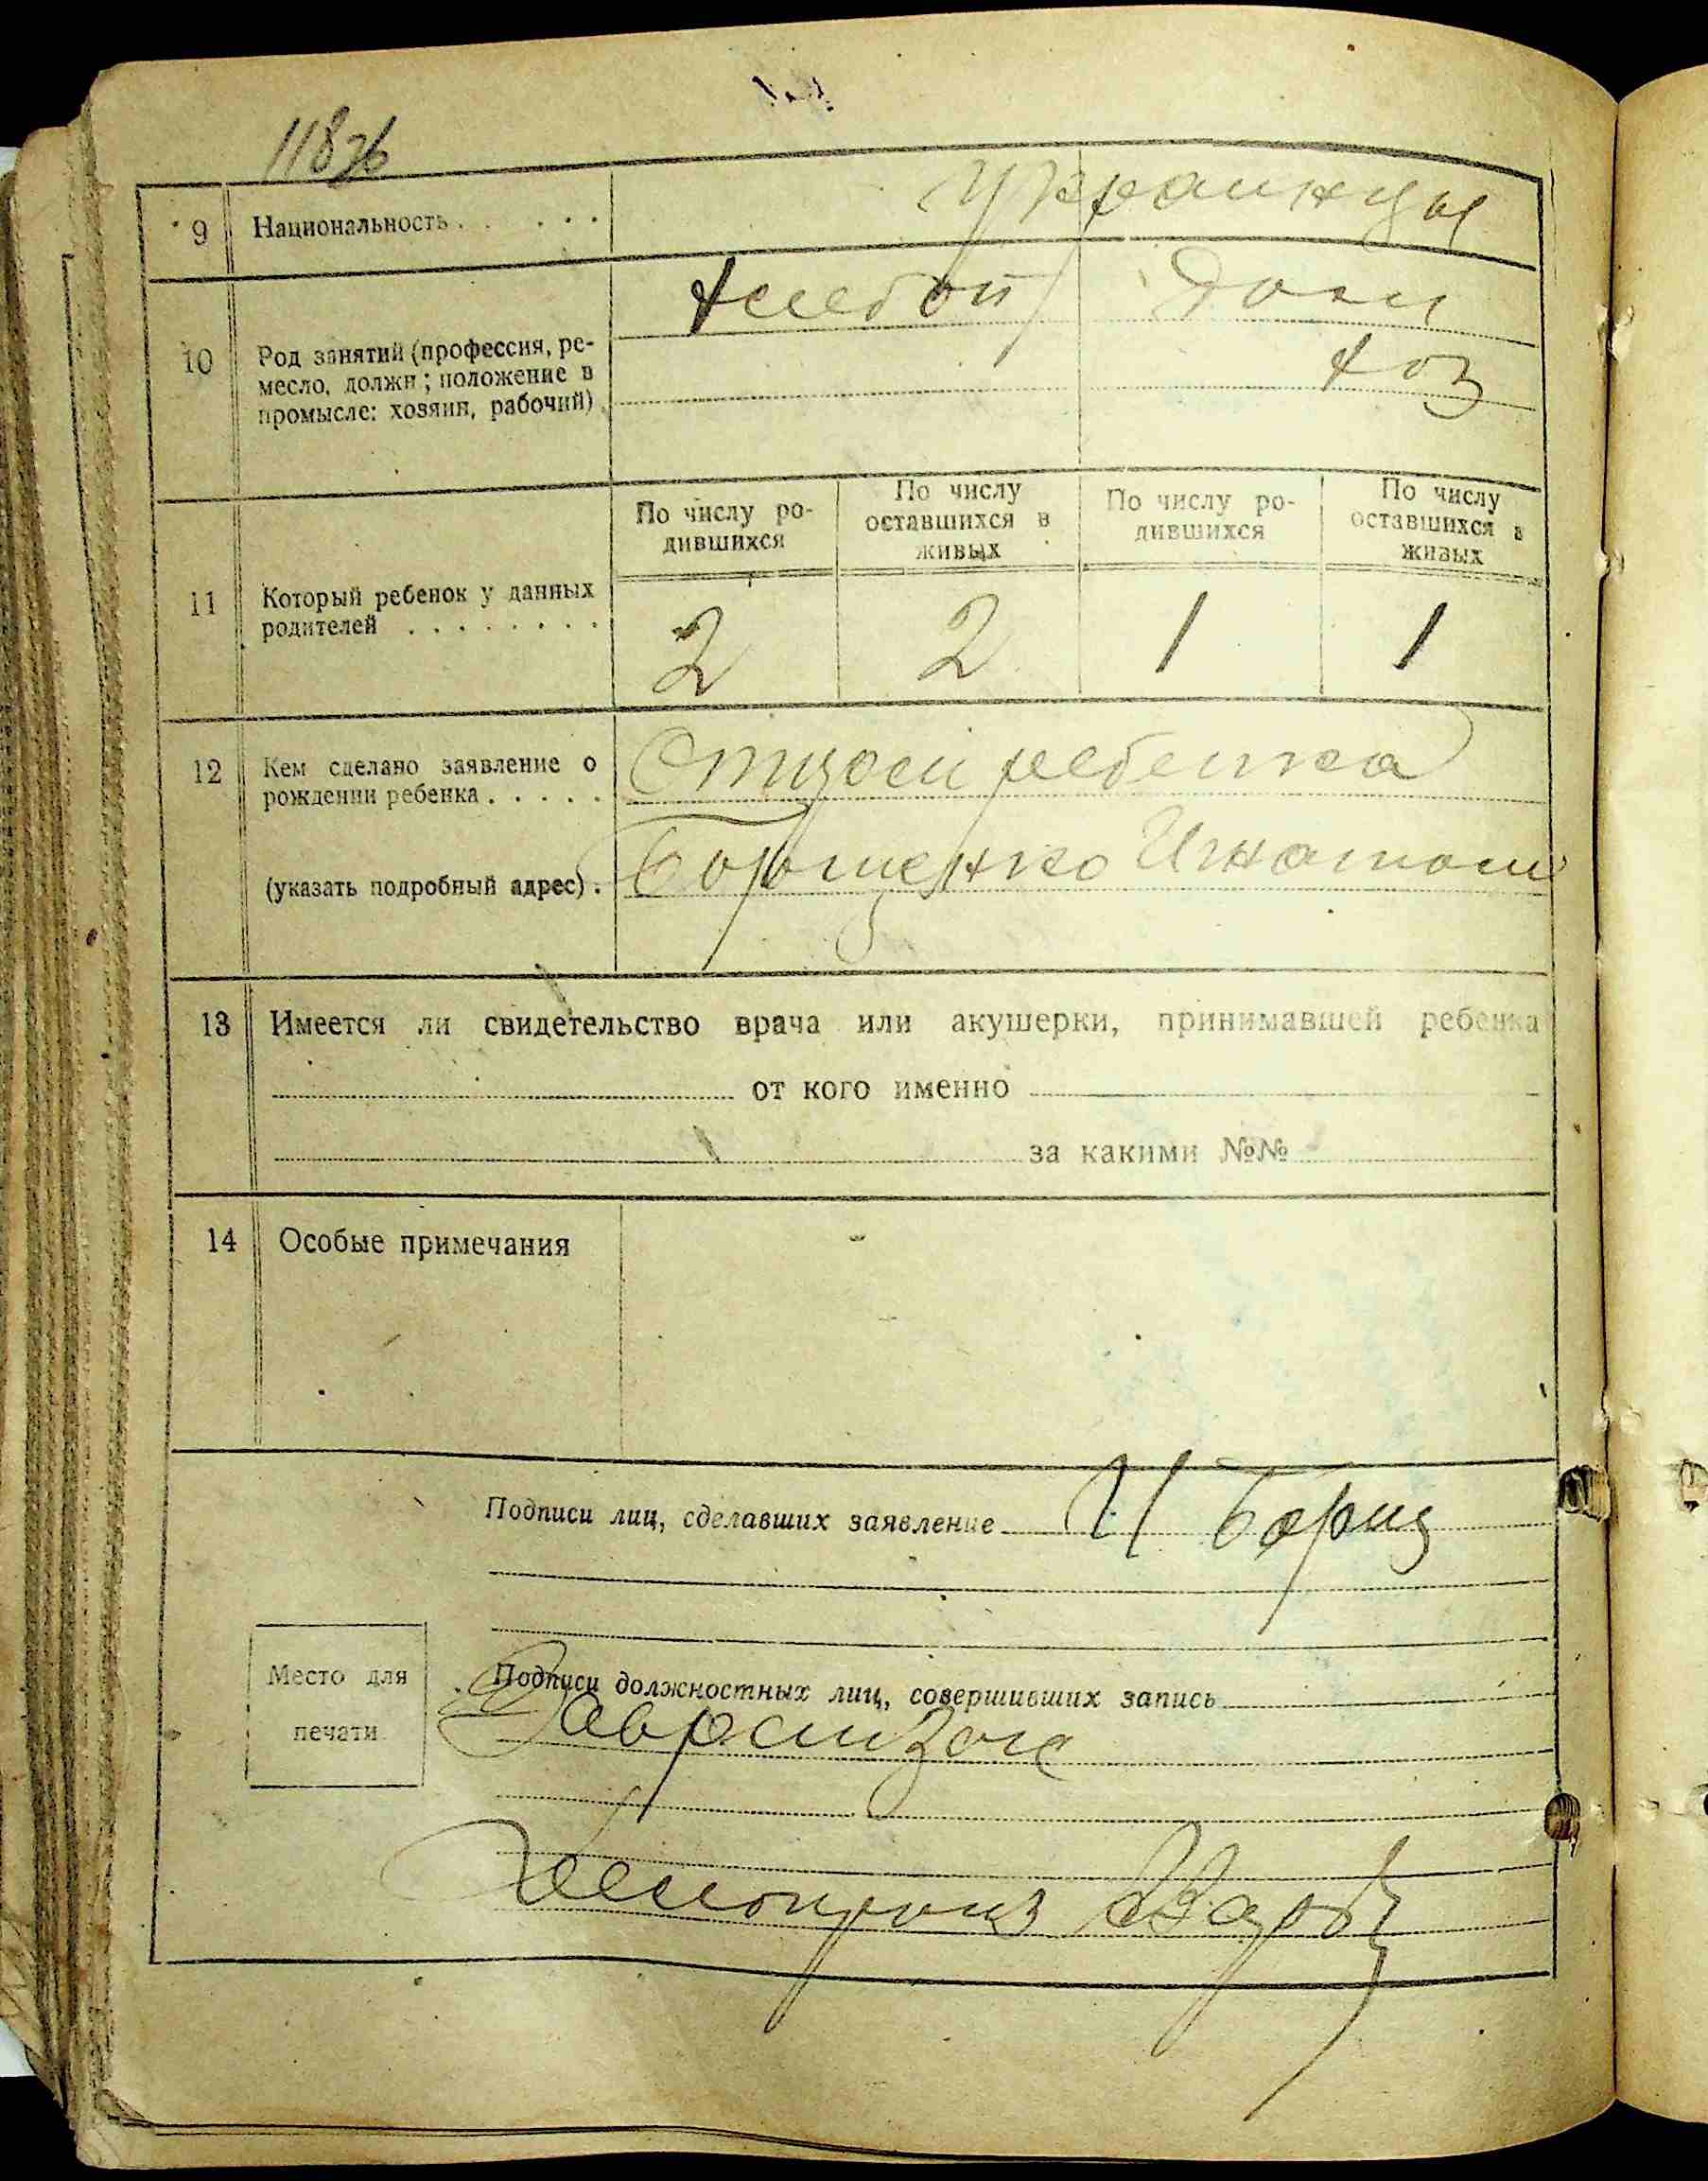 118зв
9 Национальность . . . . . . украинцы
10 Род занятий (профессия, ре-
месло, должн; положение в
промысле: хозяин, рабочий)
хлебоп дом
хоз
11 Который ребенок у данных
родителей . . . . . . . .
По числу ро-
дившихся
По числу
оставшихся в
живых
По числу ро-
дившихся
По числу
оставшихся в
живых
2 2 1 1
12 Кем сделано заявление о
рождении ребенка . . . . .
Отцом ребенка
(указать подробный адрес) . Борщенко Игнатом
13 Имеется ли свидетельство врача или акушерки, принимавшей ребенка
от кого именно
за какими №№
14 Особые примечания
Подписи лиц, сделавших заявление И Борщ
Место для
печати
Подписи должностных лиц, совершивших запись
Делопроиз